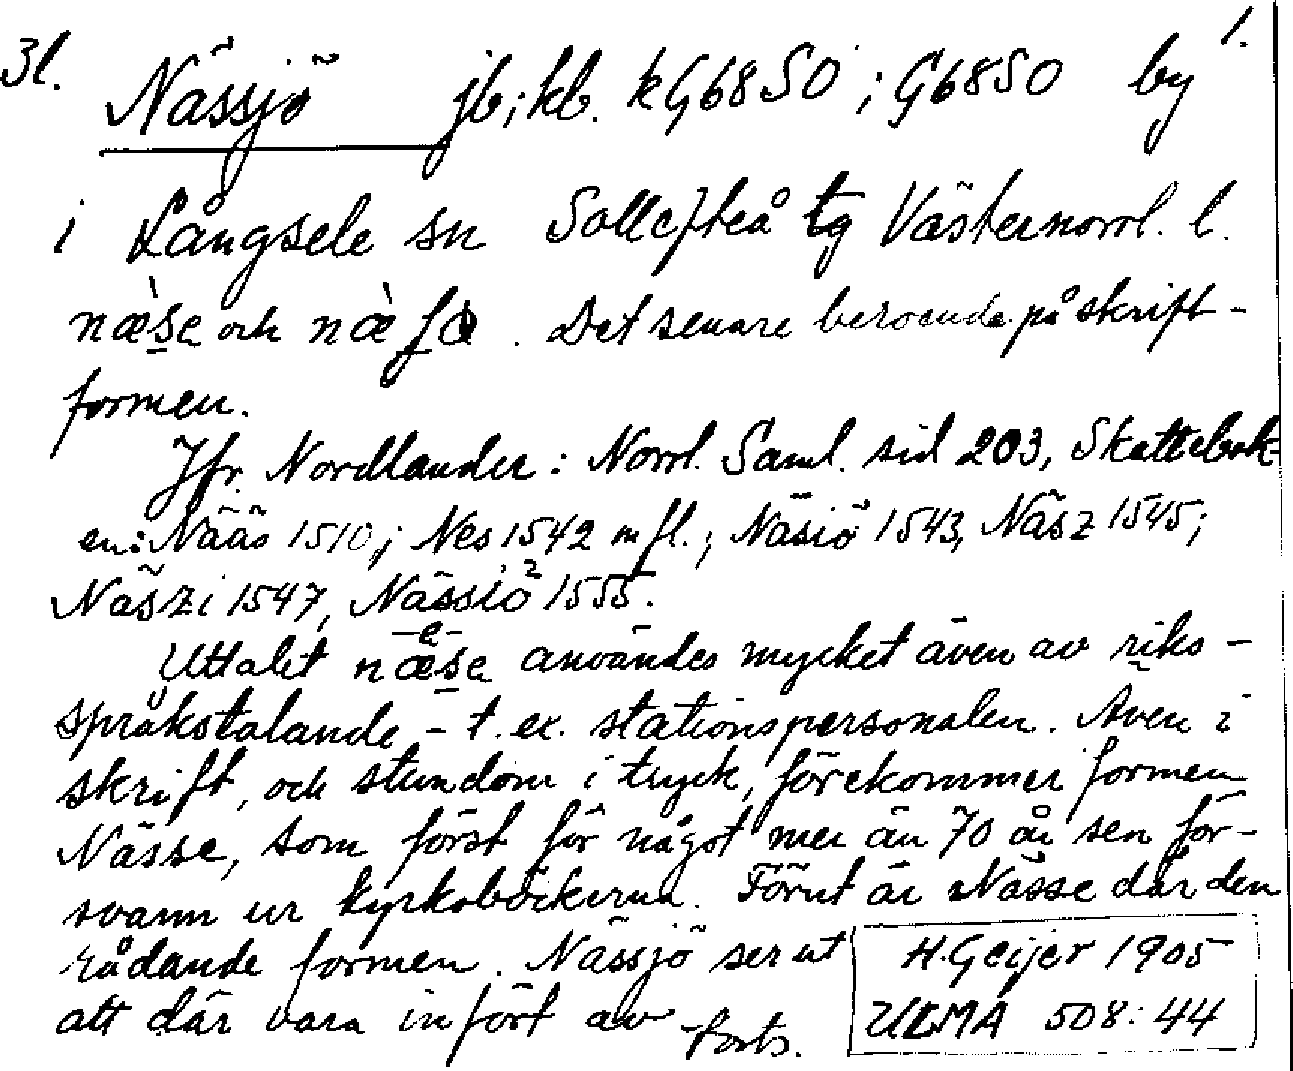 3l. Nässjö jb; kb. kG68SO; G68SO by 1.
i Långsele sn Sollefteå tg Västernorrl. l.
næ̀se och næ̀ʃø. Det senare beroende på skrift-
formen.
Jfr. Nordlander: Norrl. Saml. sid 203, Skattebok-
en: Nääs 1510; Nes 1542 m fl.; Näsiö 1543, Näsz 1545;
Näszi 1547, Nässiö 1555.
Uttalet næ̀se användes mycket även av riks-
språkstalande - t. ex. stationspersonalen. Även i
skrift, och stundom i tryck, förekommer formen
Nässe, som först för något mer än 70 år sen för-
svann ur kyrkoböckerna. Förut är Nässe där den
rådande formen. Nässjö ser ut
att där vara infört av forts.
H. Geijer 1905
ULMA 508:44